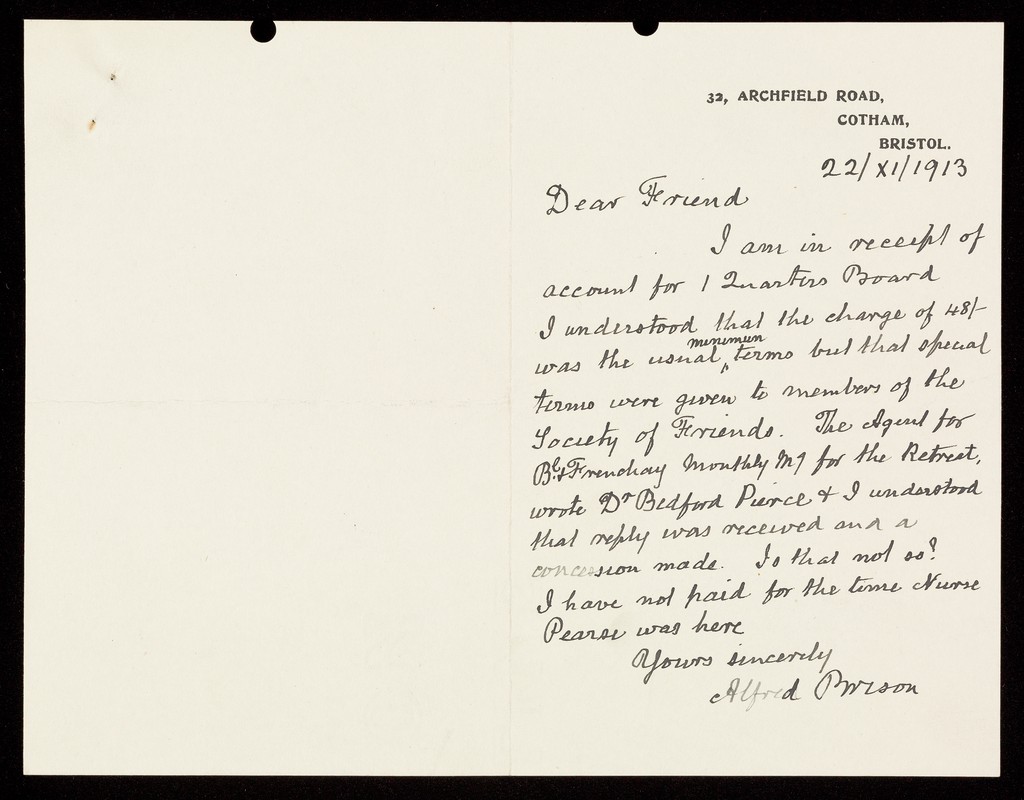 32, ARCHFIELD ROAD,
COTHAM,
BRISTOL.
22/XI/1913
Dear Friend
I am in receipt of
account for 1 Quarters Board
I understood that the charge of 48/-
was the usual minimum terms but that special
terms were given to members of the
Society of Friends. The Agent for
Bl & Frenchay Monthly Mg for the Retreat,
wrote Dr Bedford Pierce & I understood
that reply was received and a
concession made. Is that not so?
I have not paid for the time Nurse
Pearse was here
Yours sincerely
Alfred